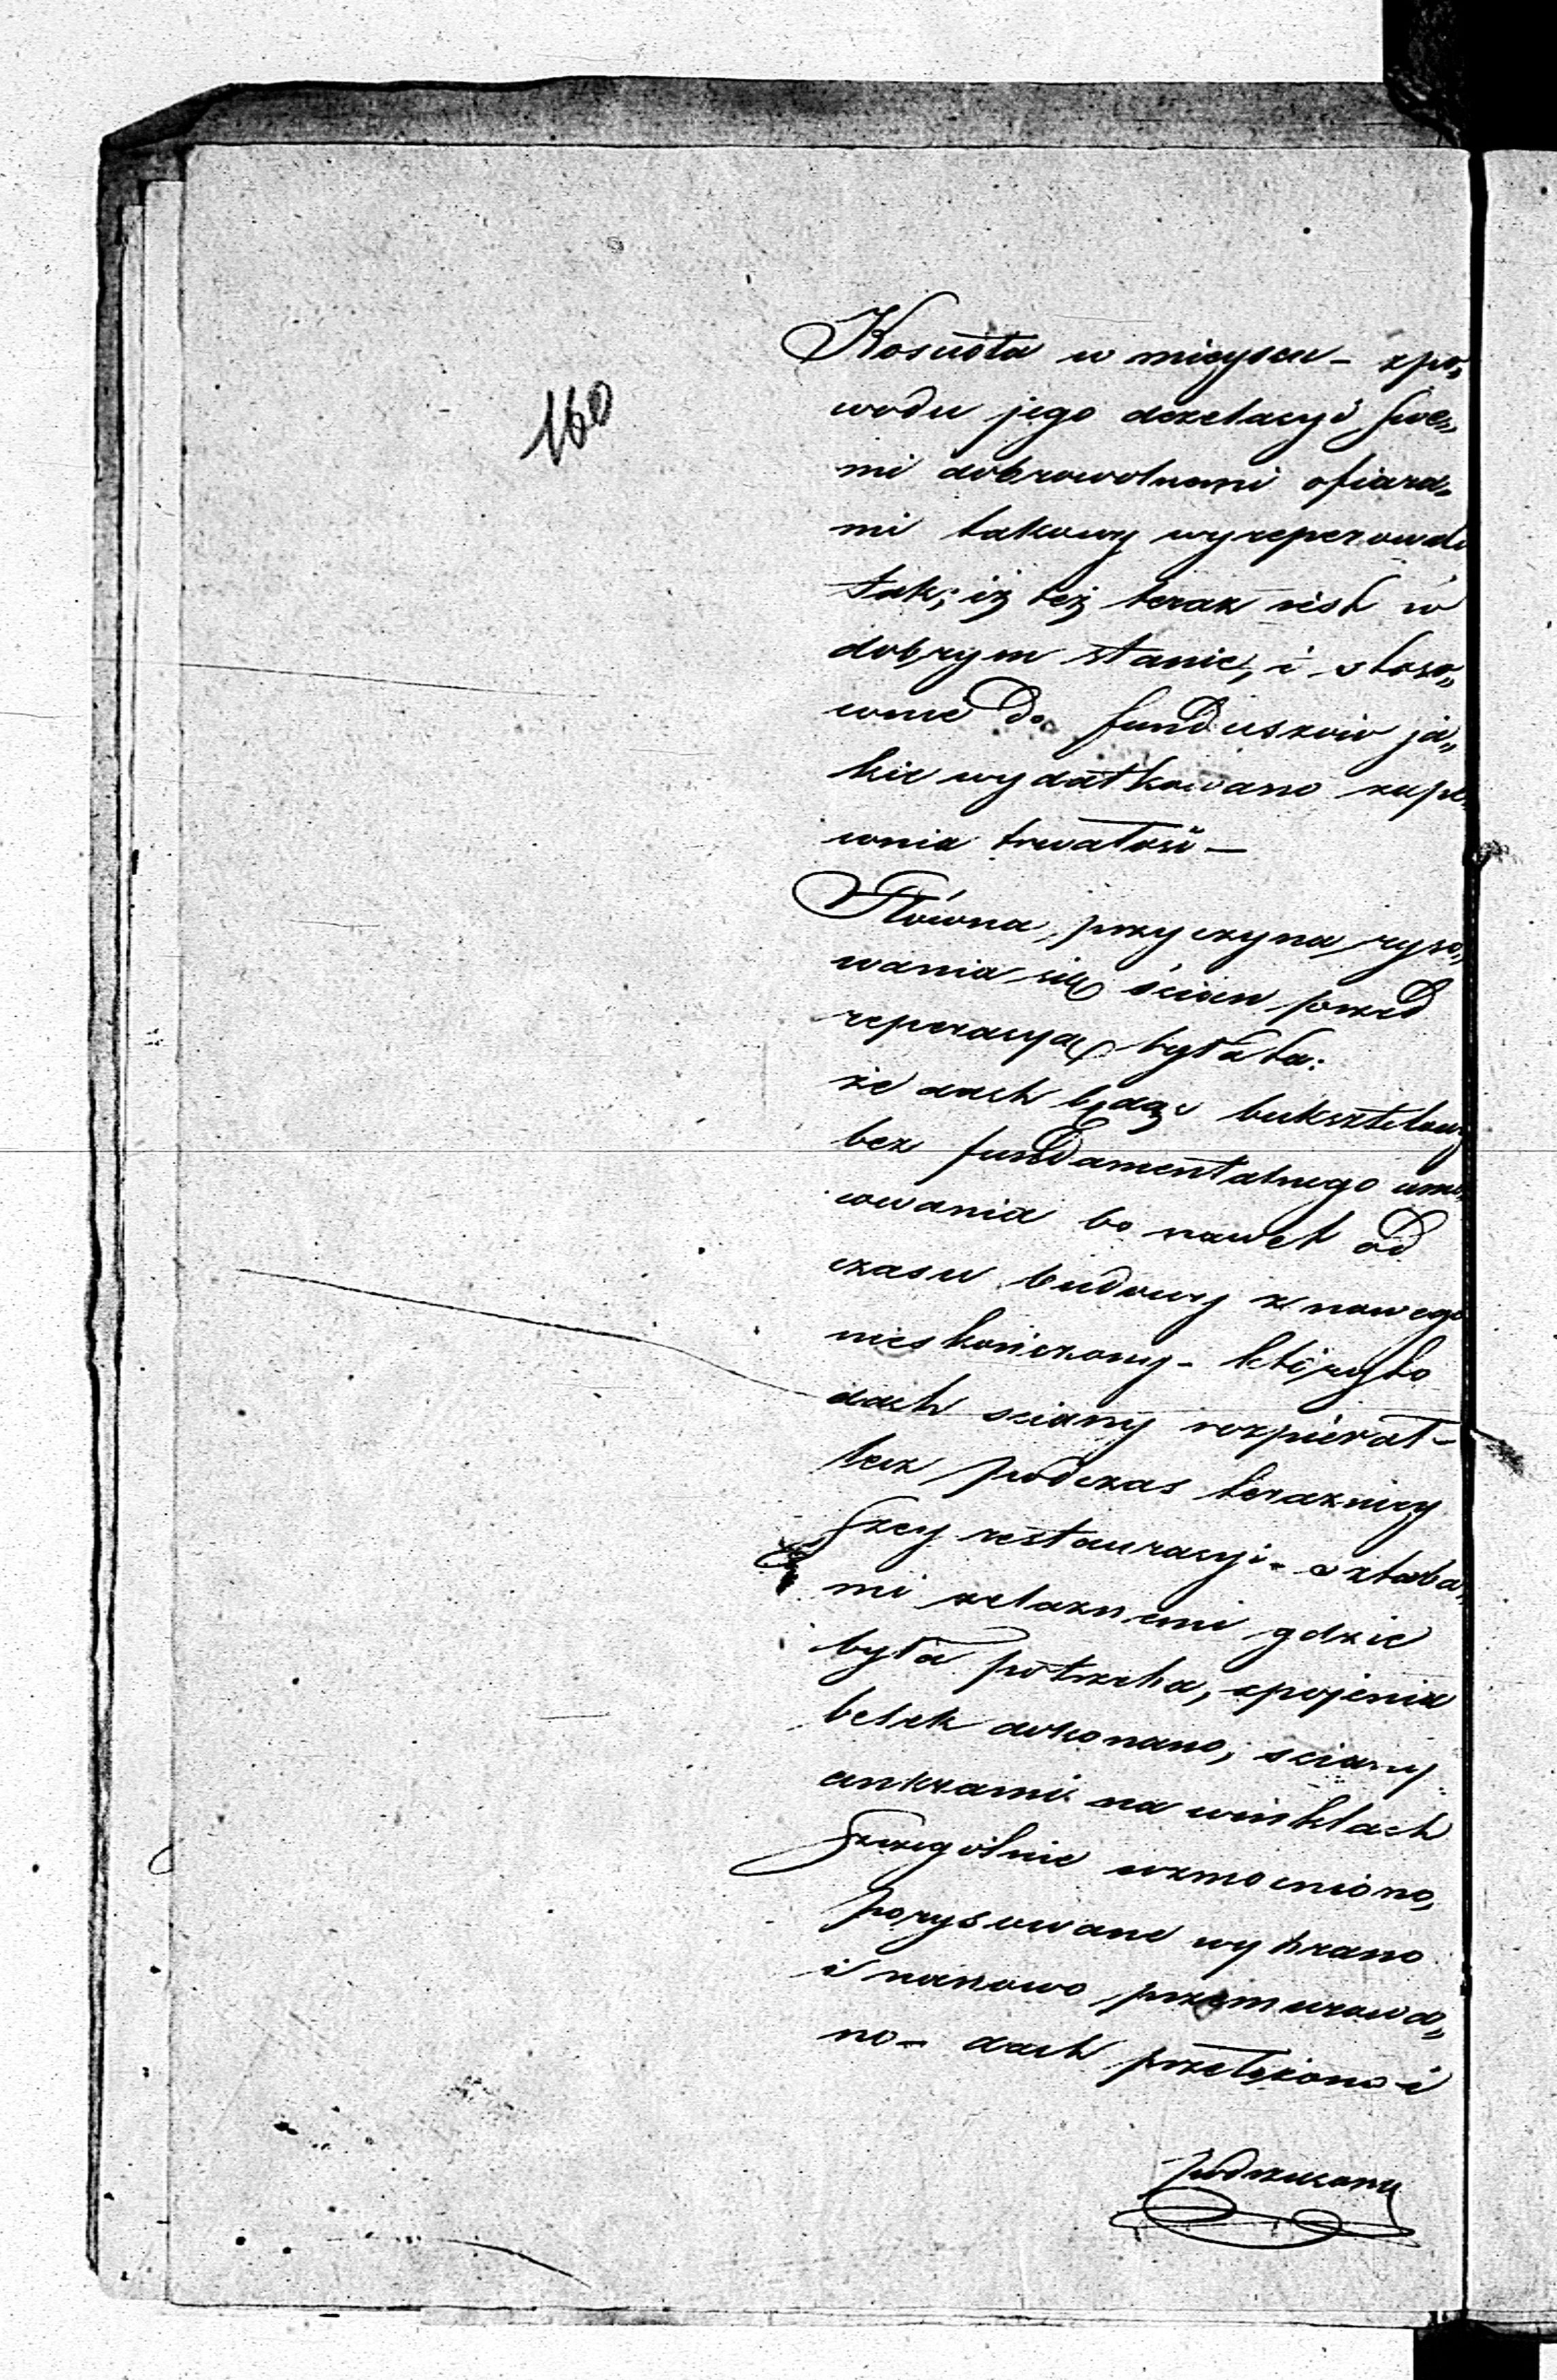 160
Kościoła w mieyscu – zpo„
wodu jego dezelacyi, swe„
mi dobrowolnemi ofiara„
mi takowy wyreperowali
tak; iż też teraz iest w
dobrym stanie, i stoso„
wnie do funduszów ja„
kie wydatkowano zape„
wnia trwałość –
Główna przyczyna ryso„
wania się ścian przed
reperacyą była ta:
że dach będąc buksztelowy
bez fundamentalnego
wowania bo nawet od
czasu budowy z nowego
nieskończony – któryto
dach sciany rozpierał –
lecz podczas terazniey
szey restauracyi – sztaba„
mi żelaznemi gdzie
była potrzeba, spojenia
belek dokonano; sciany
ankrami na winklach
szczególnie wzmocniono,
porysowane wybrano
i nanowo przemurowa„
no – dach przełożono i
podrzucony